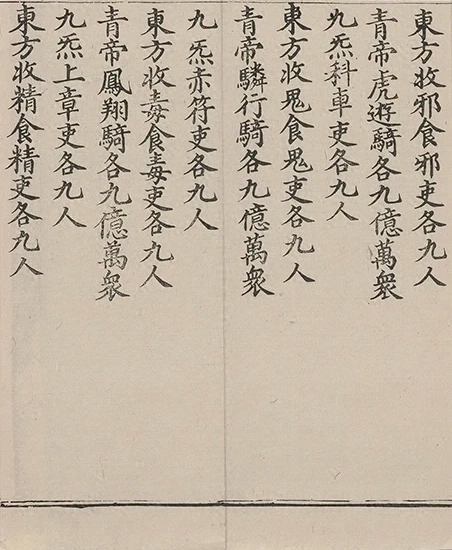 東方收邪食邪吏各九人
青帝虎遊騎各九億萬衆
九炁科車吏各九人
東方收鬼食鬼吏各九人
青帝驎行騎各九億萬衆
九炁赤符吏各九人
東方收毒食毒吏各九人
青帝鳳翔騎各九億萬衆
九炁上章吏各九人
東方收精食精吏各九人